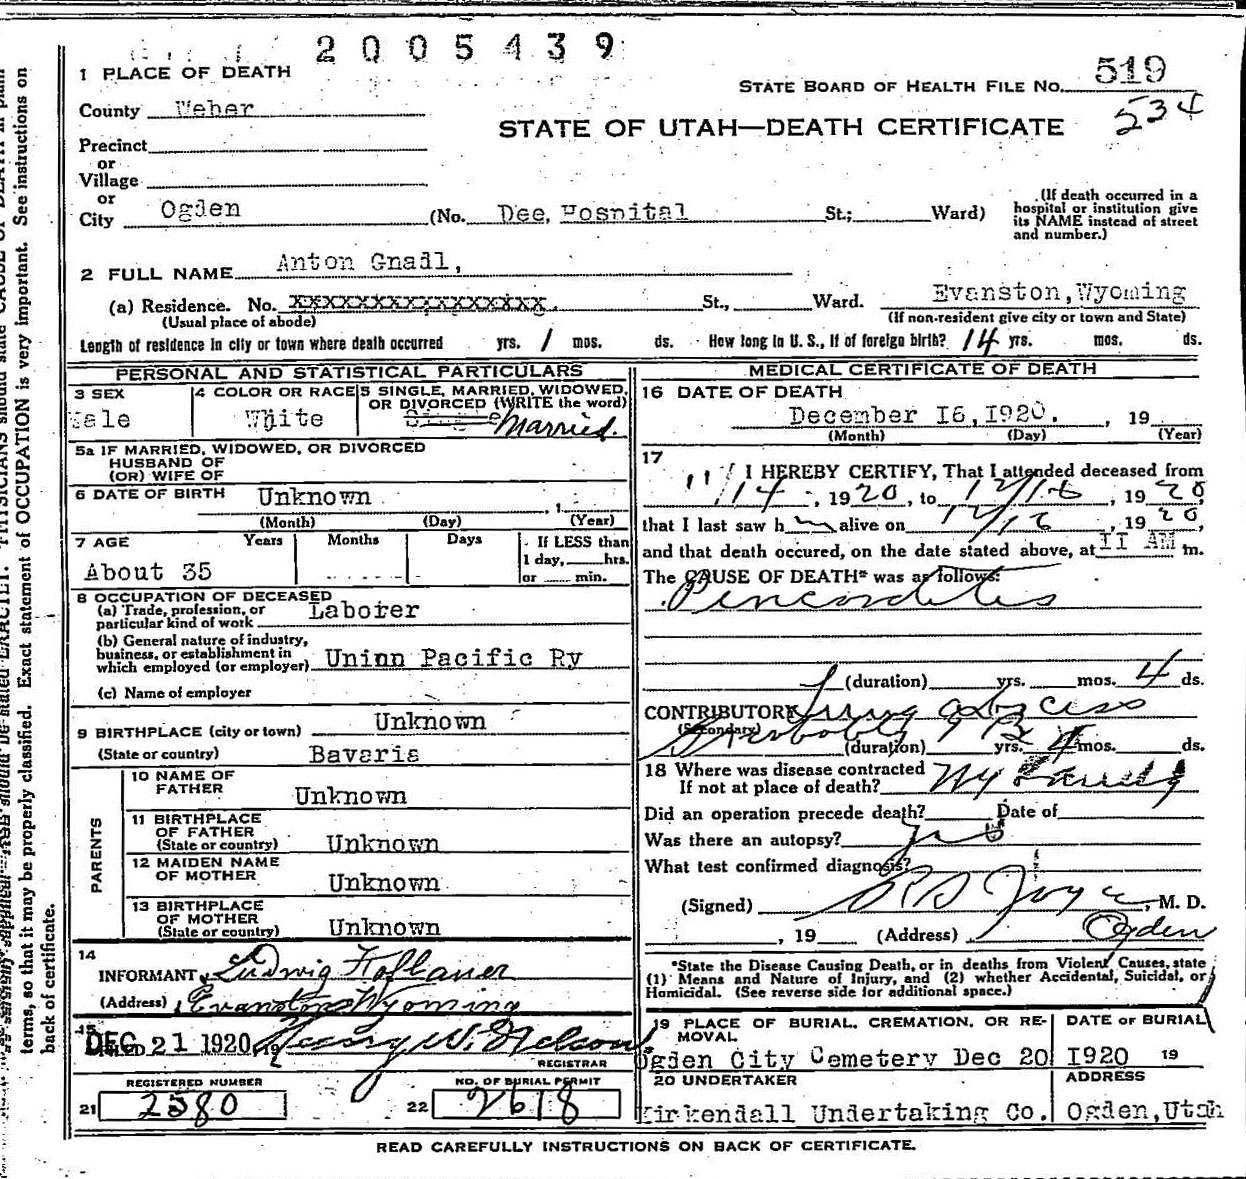 2005439
1 PLACE OF DEATH
STATE BOARD OF HEALTH FILE No. 519
534
County Weber
STATE OF UTAH—DEATH CERTIFICATE
Precinct
or
Village
or
City Ogden (No. Dee, Hospital St.; Ward)
(If death occurred in a hospital or institution give its NAME instead of street and number.)
2 FULL NAME Anton Gnadl,
(a) Residence. No. XXXXXXXXXXXXXXXXX. St., Ward. Evanston, Wyoming
(Usual place of abode) (If non-resident give city or town and State)
Length of residence in city or town where death occurred yrs. 1 mos. ds. How long in U. S., if of foreign birth? 14 yrs. mos. ds.
PERSONAL AND STATISTICAL PARTICULARS
3 SEX 4 COLOR OR RACE 5 SINGLE, MARRIED, WIDOWED, OR DIVORCED (WRITE the word)
Male White Single Married.
5a IF MARRIED, WIDOWED, OR DIVORCED
HUSBAND OF
(OR) WIFE OF
6 DATE OF BIRTH Unknown , 1
(Month) (Day) (Year)
7 AGE Years Months Days If LESS than
1 day, hrs.
About 35 or min.
8 OCCUPATION OF DECEASED
(a) Trade, profession, or particular kind of work Laborer
(b) General nature of industry, business, or establishment in which employed (or employer) Uninn Pacific Ry
(c) Name of employer
9 BIRTHPLACE (city or town) Unknown
(State or country) Bavaris
PARENTS
10 NAME OF FATHER Unknown
11 BIRTHPLACE OF FATHER (State or country) Unknown
12 MAIDEN NAME OF MOTHER Unknown
13 BIRTHPLACE OF MOTHER (State or country) Unknown
14
INFORMANT Ludwig Hoflauer
(Address) Evanston Wyoming
15
FILED DEC 21 1920, 19 Henry W. Nelson
REGISTRAR
REGISTERED NUMBER NO. OF BURIAL PERMIT
21 2580 22 2618
MEDICAL CERTIFICATE OF DEATH
16 DATE OF DEATH
December I6, I920. , 19
(Month) (Day) (Year)
17
I HEREBY CERTIFY, That I attended deceased from
11/14, 1920, to 12/16, 1920,
that I last saw h alive on 12/16, 1920,
and that death occured, on the date stated above, at II AM m.
The CAUSE OF DEATH* was as follows:
Pericarditis
(duration) yrs. mos. 4 ds.
CONTRIBUTORY Lung abscess
(Secondary) Probably TB
(duration) yrs. 4 mos. ds.
18 Where was disease contracted
If not at place of death?
Did an operation precede death? Date of
Was there an autopsy? yes
What test confirmed diagnosis?
(Signed) Joyce, M. D.
, 19 (Address) Ogden
*State the Disease Causing Death, or in deaths from Violent Causes, state (1) Means and Nature of Injury, and (2) whether Accidental, Suicidal, or Homicidal. (See reverse side for additional space.)
19 PLACE OF BURIAL, CREMATION, OR REMOVAL DATE OF BURIAL
Ogden City Cemetery Dec 20 I920 19
20 UNDERTAKER ADDRESS
Kirkendall Undertaking Co. Ogden, Utah
READ CAREFULLY INSTRUCTIONS ON BACK OF CERTIFICATE.
terms, so that it may be properly classified. Exact statement of OCCUPATION is very important. See instructions on
back of certificate.